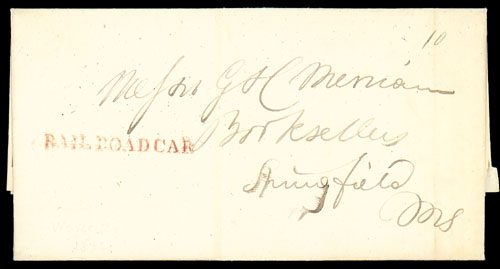 10
Messrs G & C Merriam
Booksellers
RAILROAD CAR
Springfield
Ms